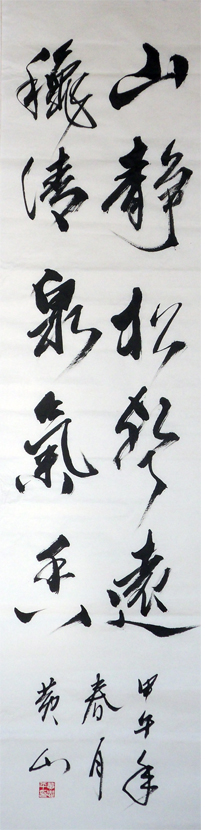 山静松聲遠
穐清泉氣香
甲午年
春月
黄山